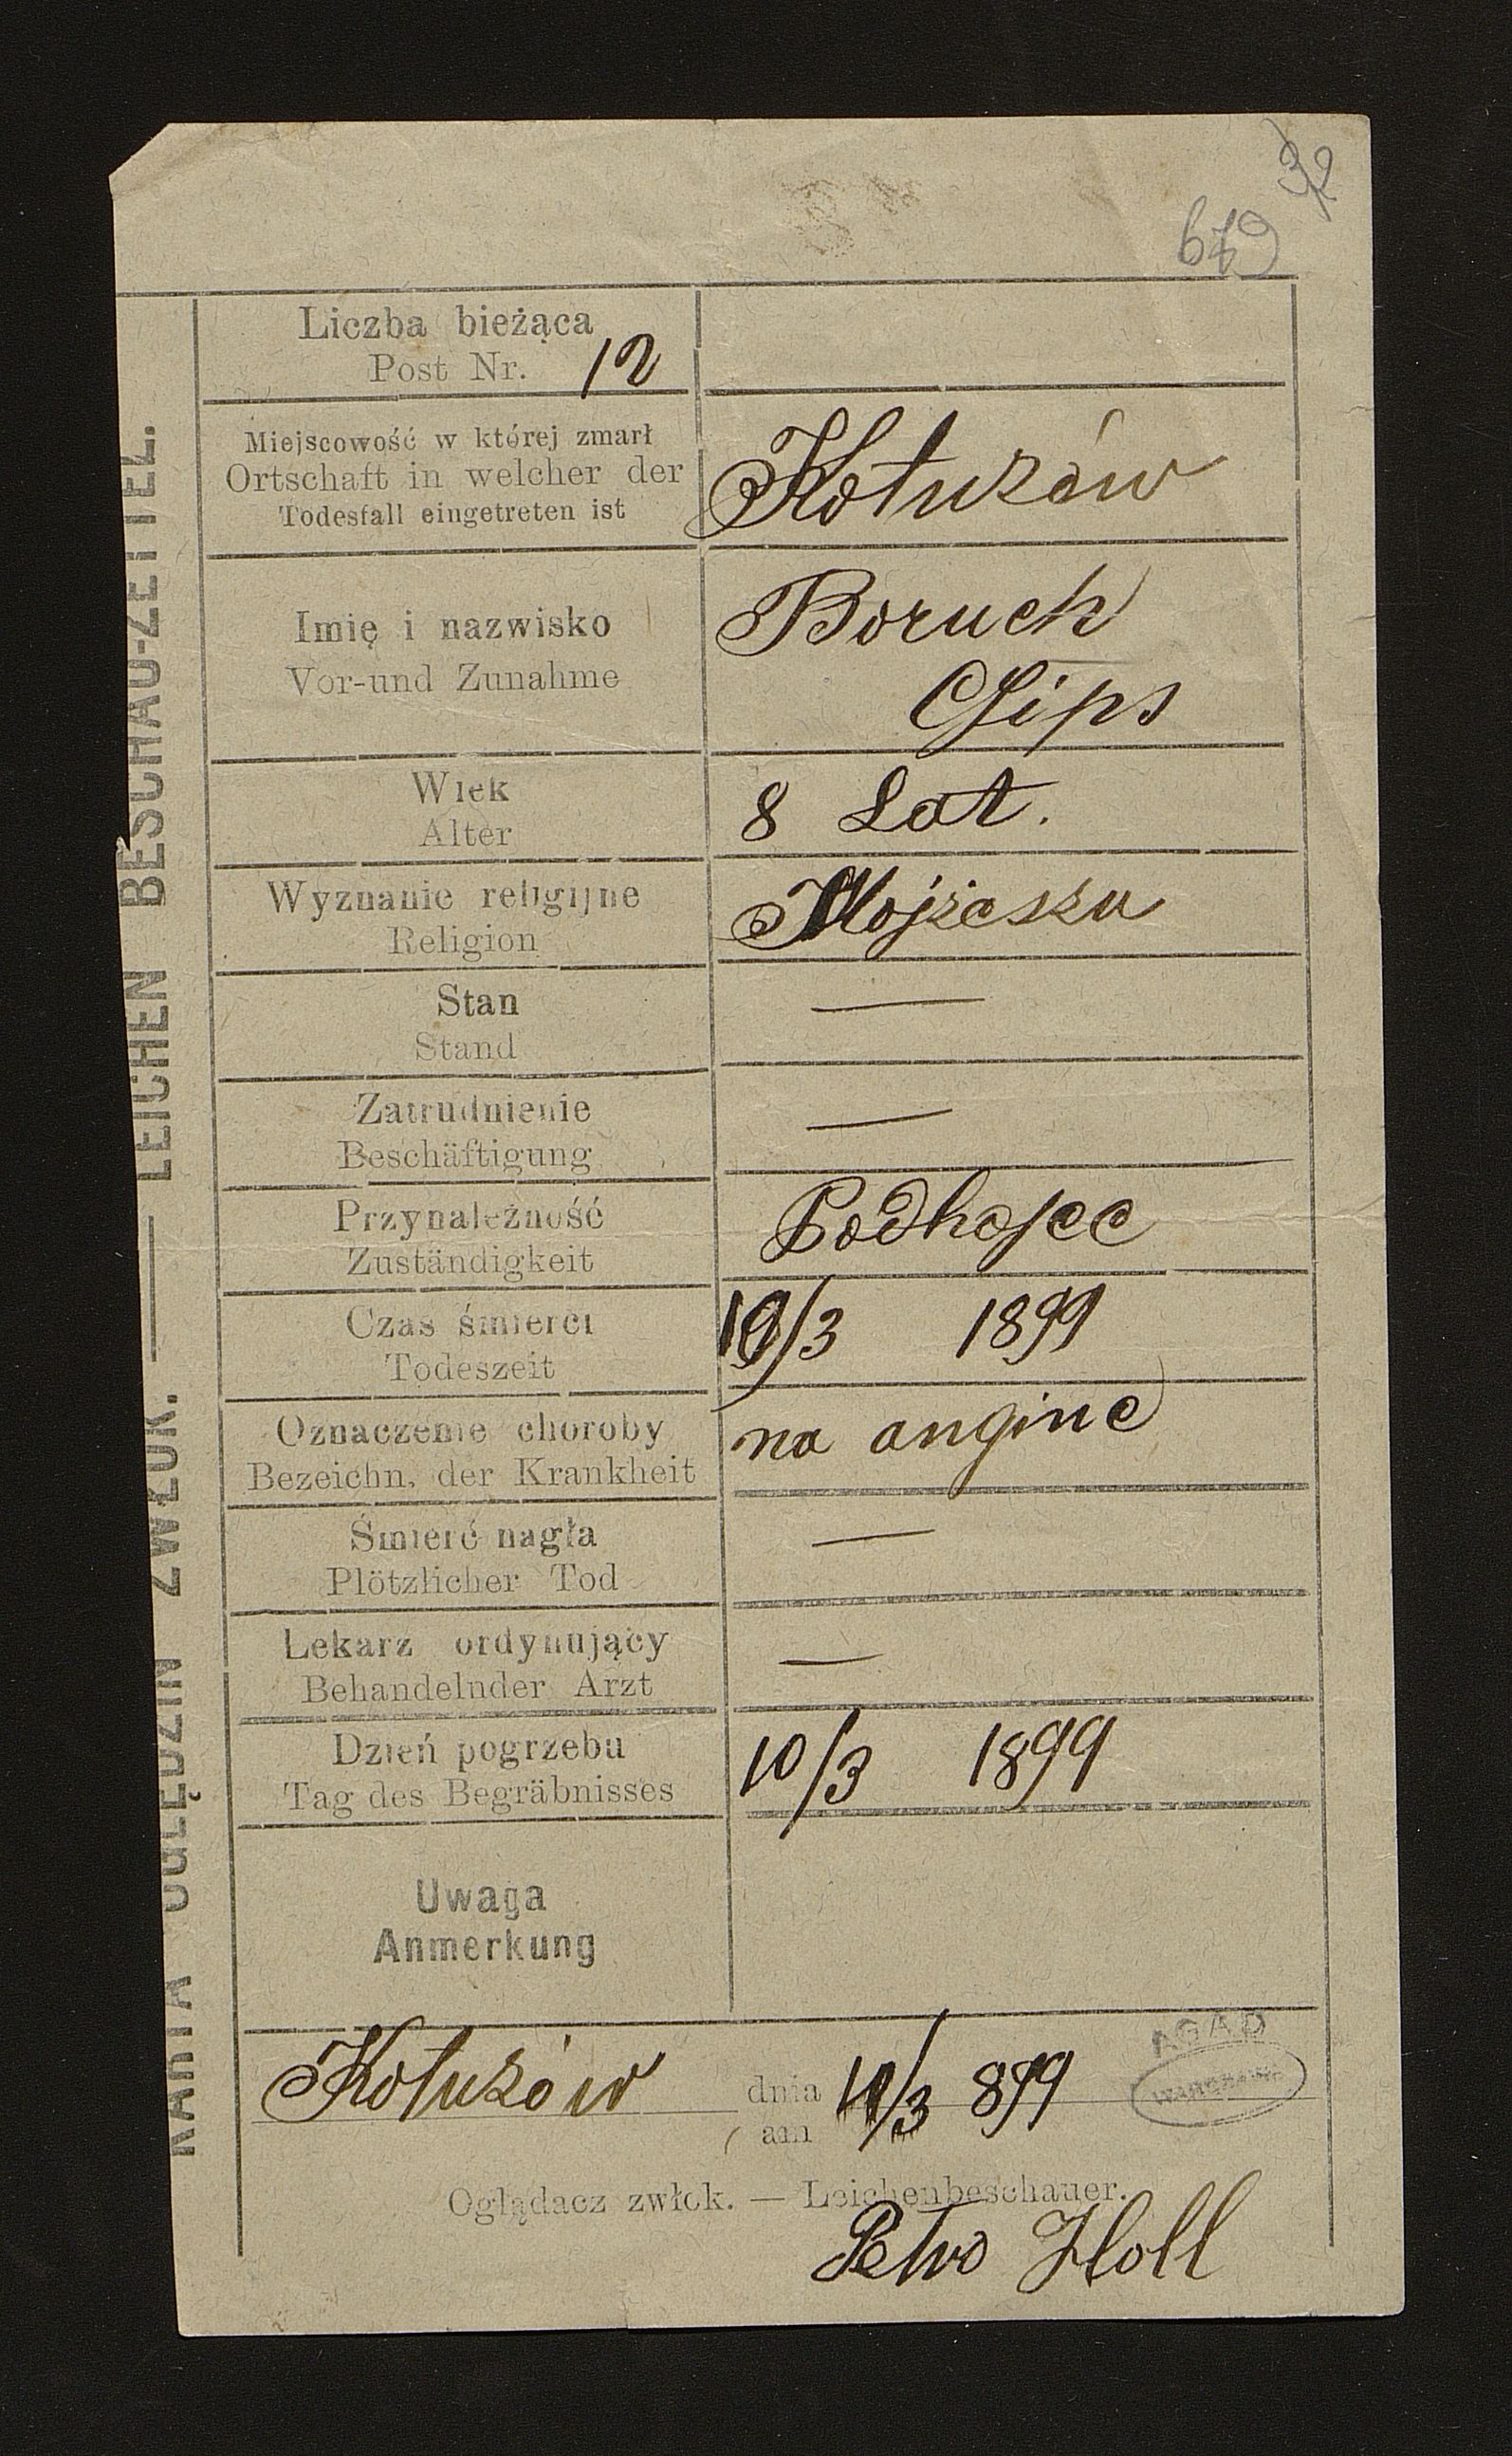 32
679
KARTA OGLĘDZIN ZWŁOK. — LEICHEN BESCHAU-ZETTEL.
Liczba bieżąca
Post Nr. 12
Miejscowość w której zmarł
Ortschaft in welcher der
Todesfall eingetreten ist
Kotuzów
Imię i nazwisko
Vor-und Zunahme
Boruch
Gips
Wiek
Alter
8 Lat.
Wyznanie religijne
Religion
Mojżesku
Stan
Stand
—
Zatrudnienie
Beschäftigung
—
Przynależność
Zuständigkeit
Podhajce
Czas śmierci
Todeszeit
10/3 1899
Oznaczenie choroby
Bezeichn. der Krankheit
na angine
Śmierć nagła
Plötzlicher Tod
—
Lekarz ordynujący
Behandelnder Arzt
—
Dzień pogrzebu
Tag des Begräbnisses
10/3 1899
Uwaga
Anmerkung
Kotuzów dnia 10/3 899
am
AGAD
WARSZAWA
Oglądacz zwłok. — Leichenbeschauer.
Petro Holl